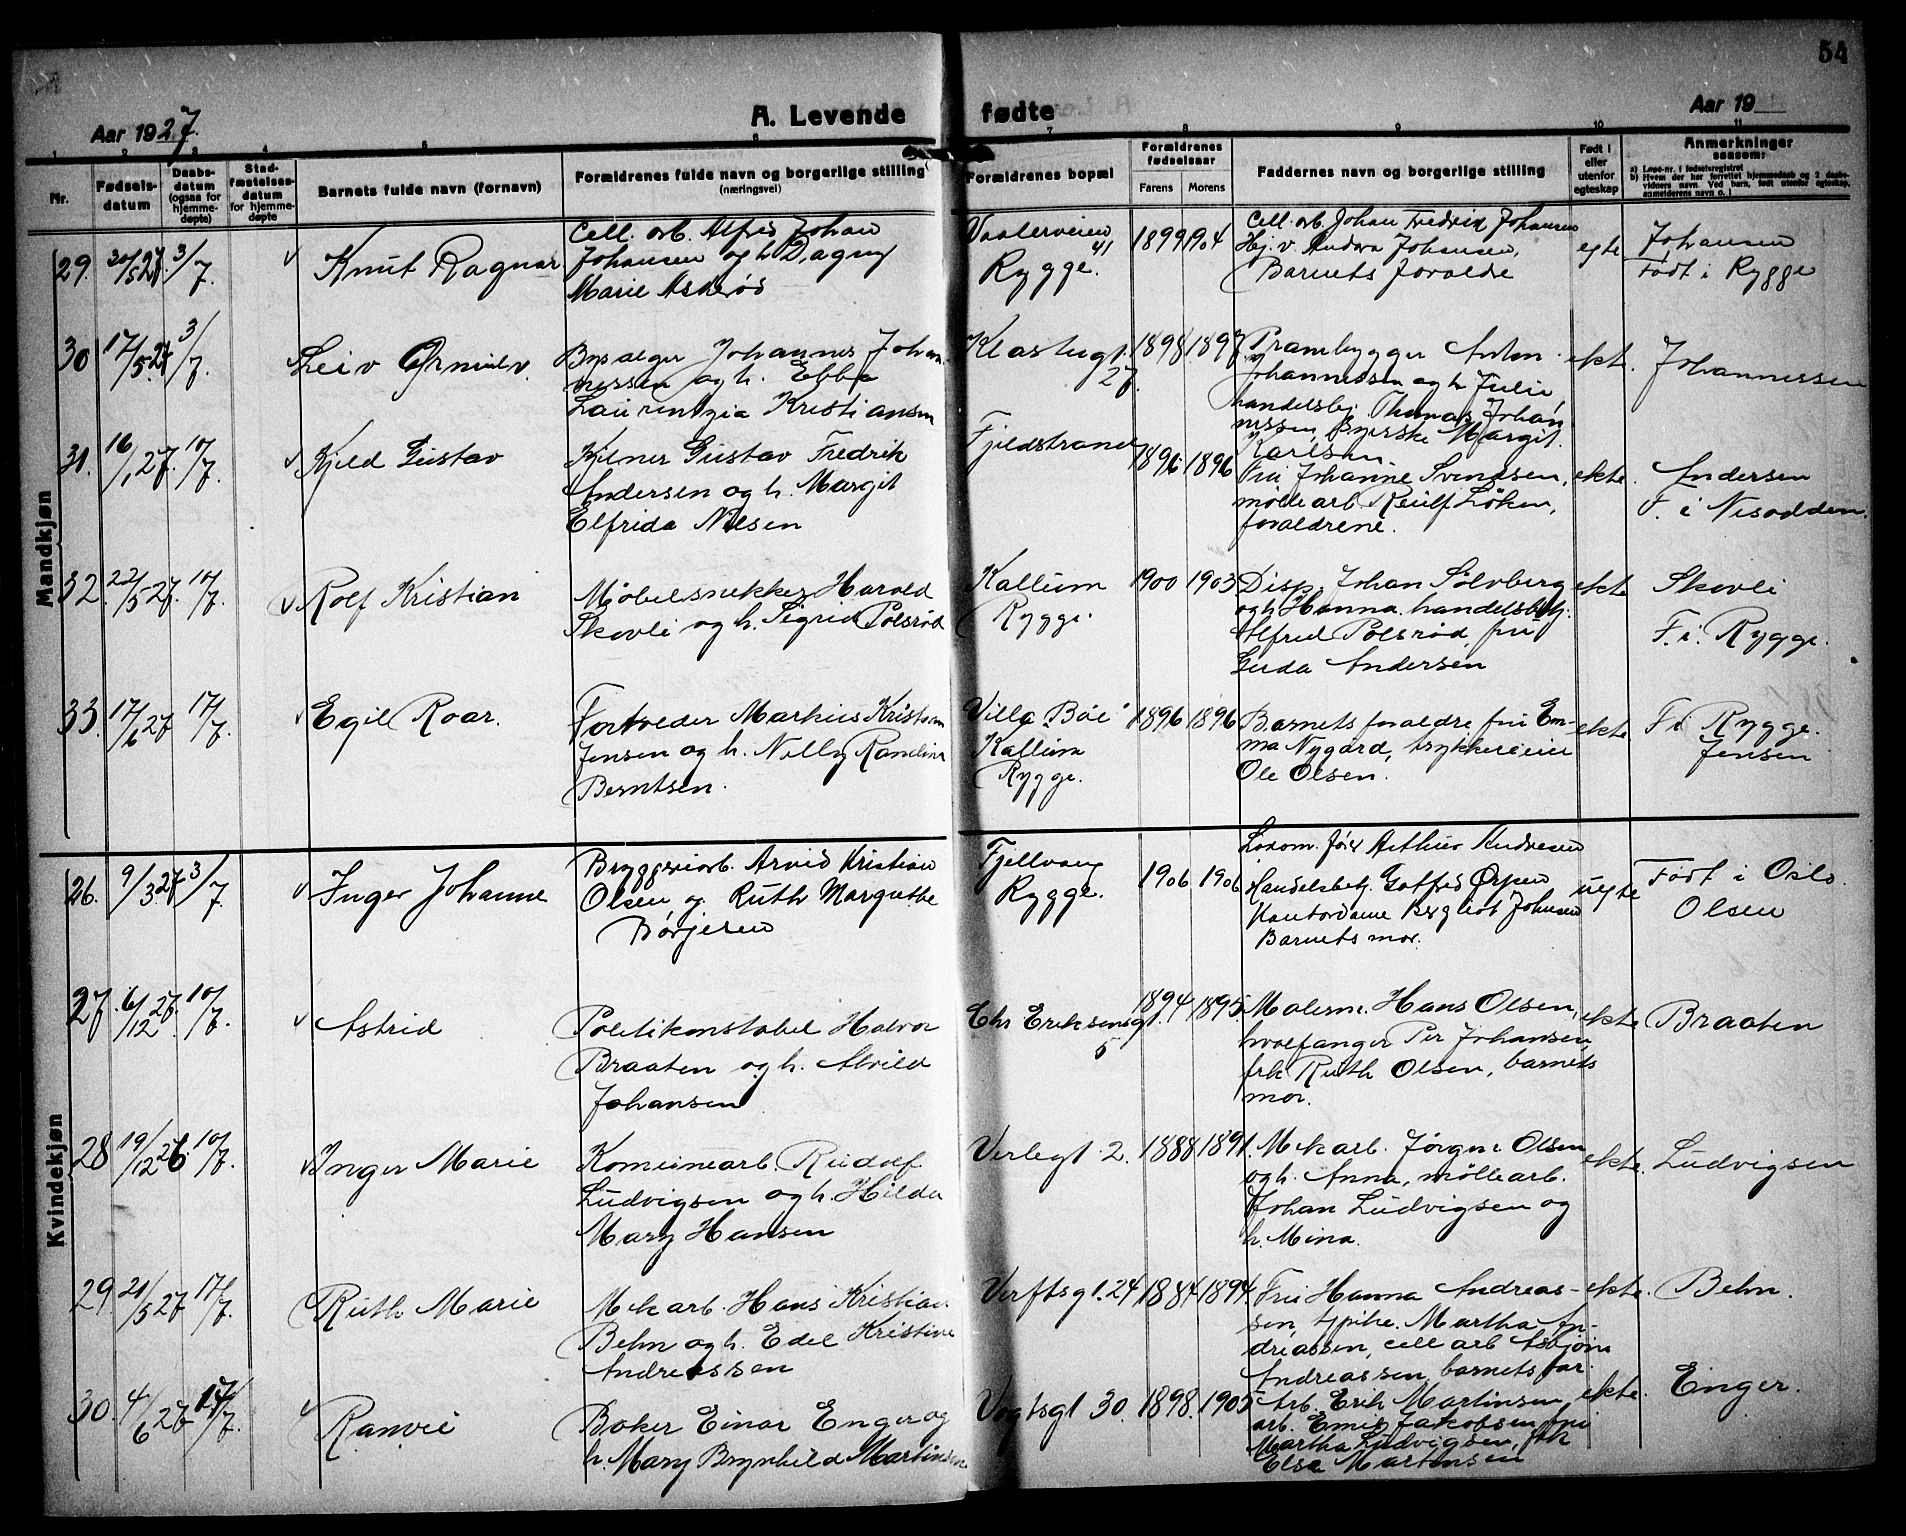 54
Aar 1927.
A. Levende fødte
Aar 19
1 2 3 4 5 6 7 8 9 10 11
Nr.
Fødsels-
datum
Daabs-
datum
(ogsaa for
hjemme-
døpte)
Stad-
fæstelses-
datum
for hjemme-
døpte
Barnets fulde navn (fornavn)
Forældrenes fulde navn og borgerlige stilling
(næringsvei)
Forældrenes bopæl
Forældrenes
fødselsaar
Farens Morens
Faddernes navn og borgerlige stilling
Født i
eller
utenfor
egteskap
Anmerkninger
saasom:
a) Løpe-nr. i fødselsregistret
b) Hvem der har forrettet hjemmedaab og 2 daabs-
vidners navn. Ved barn, født utenfor egteskap,
anmelderens navn o. l.
Mandkjøn
29. 30/5 27. 3/7.
Knut Ragnar
Cell. arb. Alfred Johan
Johansen og h. Dagny
Marie Askerød
Vaalerveien 41
Rygge.
1899 1904
Cell. arb. Johan Fredrik Johansen
Hj. v. Andrea Johansen,
Barnets forældre
egte
Johansen
Født i Rygge
30 17/5 27 3/7.
Leiv Ørnulv.
Johannes Johan-
nessen og h. Ebba
Laurentzia Kristiansen
27.
1898 1897
Prambygger Anton
Johannessen og h. Julie,
handelsbj. Thomas Johan-
nessen, Margit
Karlsen
ekte.
Johannessen
31. 16/1 27. 10/7.
Kjeld Gustav
Kelner Gustav Fredrik
Andersen og h. Margit
Elfrida Nilsen
Fjeldstrand
1896 1896
Fru Johanne Svendsen,
møllearb. Løken,
foraldrene.
ekte.
Andersen
F. i Nesodden.
32. 22/5 27. 10/7.
Rolf Kristian
Møbelsnekker Harald
Skovli og h. Sigrid Polsrød
Kallum
Rygge.
1900 1903
Disp. Johan Sølvberg
og h. Hanna, handelsbetj.
Alfred Polsrød, fru
Gerda Andersen
ekte
Skovli
F. i. Rygge.
33. 17/6 27 17/7.
Egil Roar.
Markus Kristian
Jensen og h. Nelly Ramline
Berntsen.
Villa Bøe
Kallum
Rygge.
1896 1896
Barnets foraldre fru Em-
ma Nygård, trykkereieier
Ole Olsen.
ekte.
F. i Rygge.
Jensen
Kvindekjøn
26. 9/3 27 3/7.
Inger Johanne
Bryggeriarb. Arvid Kristian
Olsen og Ruth Margrethe
Børjesen
Fjellvang
Rygge.
1906 1906
Arthur Andresen
Handelsbetj. Gotfred Ørpen
Kontordame Bergliot Johnsen
Barnets mor.
uegte
Født i Oslo.
Olsen
27. 6/12 27. 10/7.
Astrid
Politikonstabel Halvor
Braaten og h. Alvild
Johansen
Chr Eriksensgt. 5
1894 1895
Malerm. Hans Olsen,
hvalfanger Per Johansen,
frk Ruth Olsen, barnets
mor.
ekte
Braaten
28 19/12 26. 10/7.
Inger Marie
Komunearb. Rudolf
Ludvigsen og h. Hilda
Mary Hansen
Verlegt 2.
1888 1891.
Mek arb. Jørgen Olsen
og h. Anna, møllearb.
Johan Ludvigsen og
h. Mina.
ekte.
Ludvigsen
29 21/5 27 17/7.
Ruth Marie
Mek arb. Hans Kristian
Behn og h. Edel Kristine
Andreassen
Verftsgt. 24
1884 1894
Fru Hanna Andreas-
sen, pike. Martha An-
dreassen, cell arb Asbjørn
Andreassen, barnets far.
ekte.
Behn.
30. 4/6 27 17/7.
Ranvei
Baker Einar Enger og
h. Mary Brynhild Martinsen
Vogtsgt 30.
1898. 1905
Arb. Erik Martinsen,
arb. Emil Jakobsen, fru
Martha Ludvigsen, frk
Elsa Martinsen
ekte.
Enger.